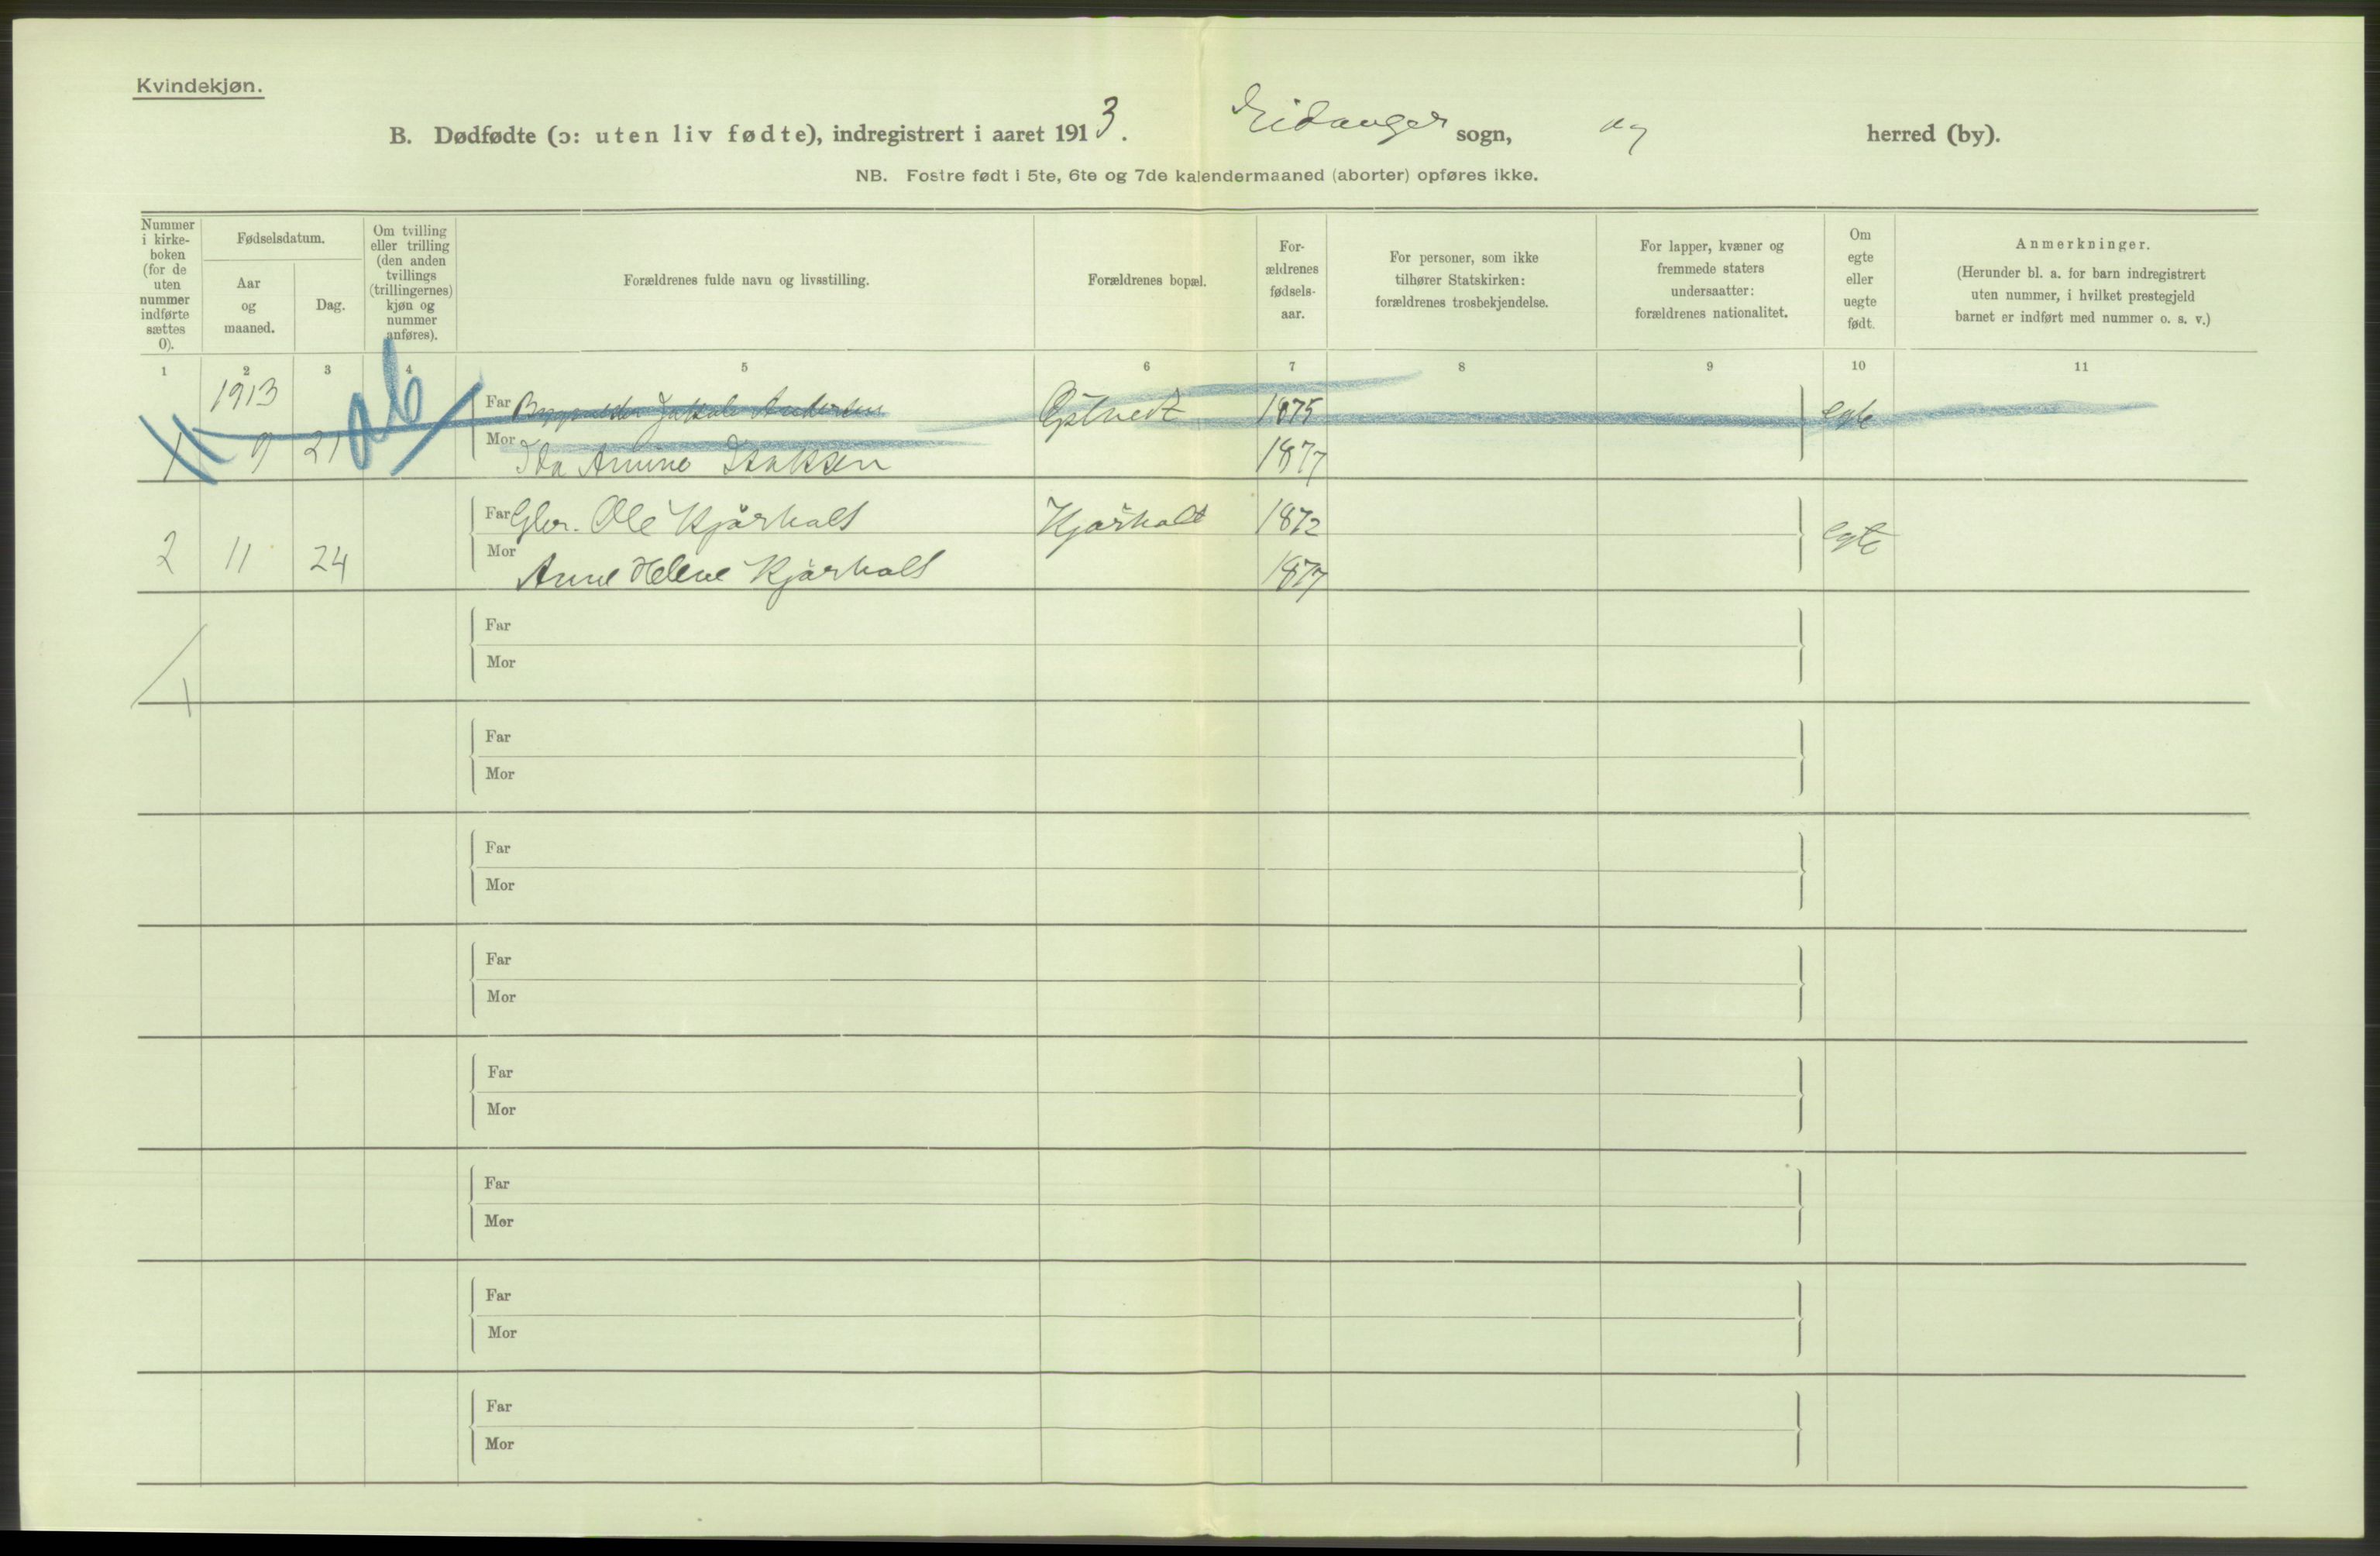 Kvindekjøn.
B. Dødfødte (ɔ: uten liv fødte), indregistrert i aaret 1913. Eidanger sogn, og herred (by).
NB. Fostre født i 5te, 6te og 7de kalendermaaned (aborter) opføres ikke.
Nummer i kirke-boken (for de uten nummer indførte sættes 0).
Fødselsdatum.
Aar og maaned.
Dag.
Om tvilling eller trilling (den anden tvillings (trillingernes) kjøn og nummer anføres).
Forældrenes fulde navn og livsstilling.
Forældrenes bopæl.
For-ældrenes fødsels-aar.
For personer, som ikke tilhører Statskirken: forældrenes trosbekjendelse.
For lapper, kvæner og fremmede staters undersaatter: forældrenes nationalitet.
Om egte eller uegte født.
Anmerkninger.
(Herunder bl. a. for barn indregistrert uten nummer, i hvilket prestegjeld barnet er indført med nummer o. s. v.)
1 2 3 4 5 6 7 8 9 10 11
1913
Far Andersen 1875 egte
1 9 21 ab
Mor Ida Amine Isaksen 1877
Far Gbr. Ole Kjørholt Kjørholt 1872 egte
2 11 24
Mor Anne Helene Kjørholt 1877
Far
Mor
1
Far
Mor
Far
Mor
Far
Mor
Far
Mor
Far
Mor
Far
Mor
Far
Mor